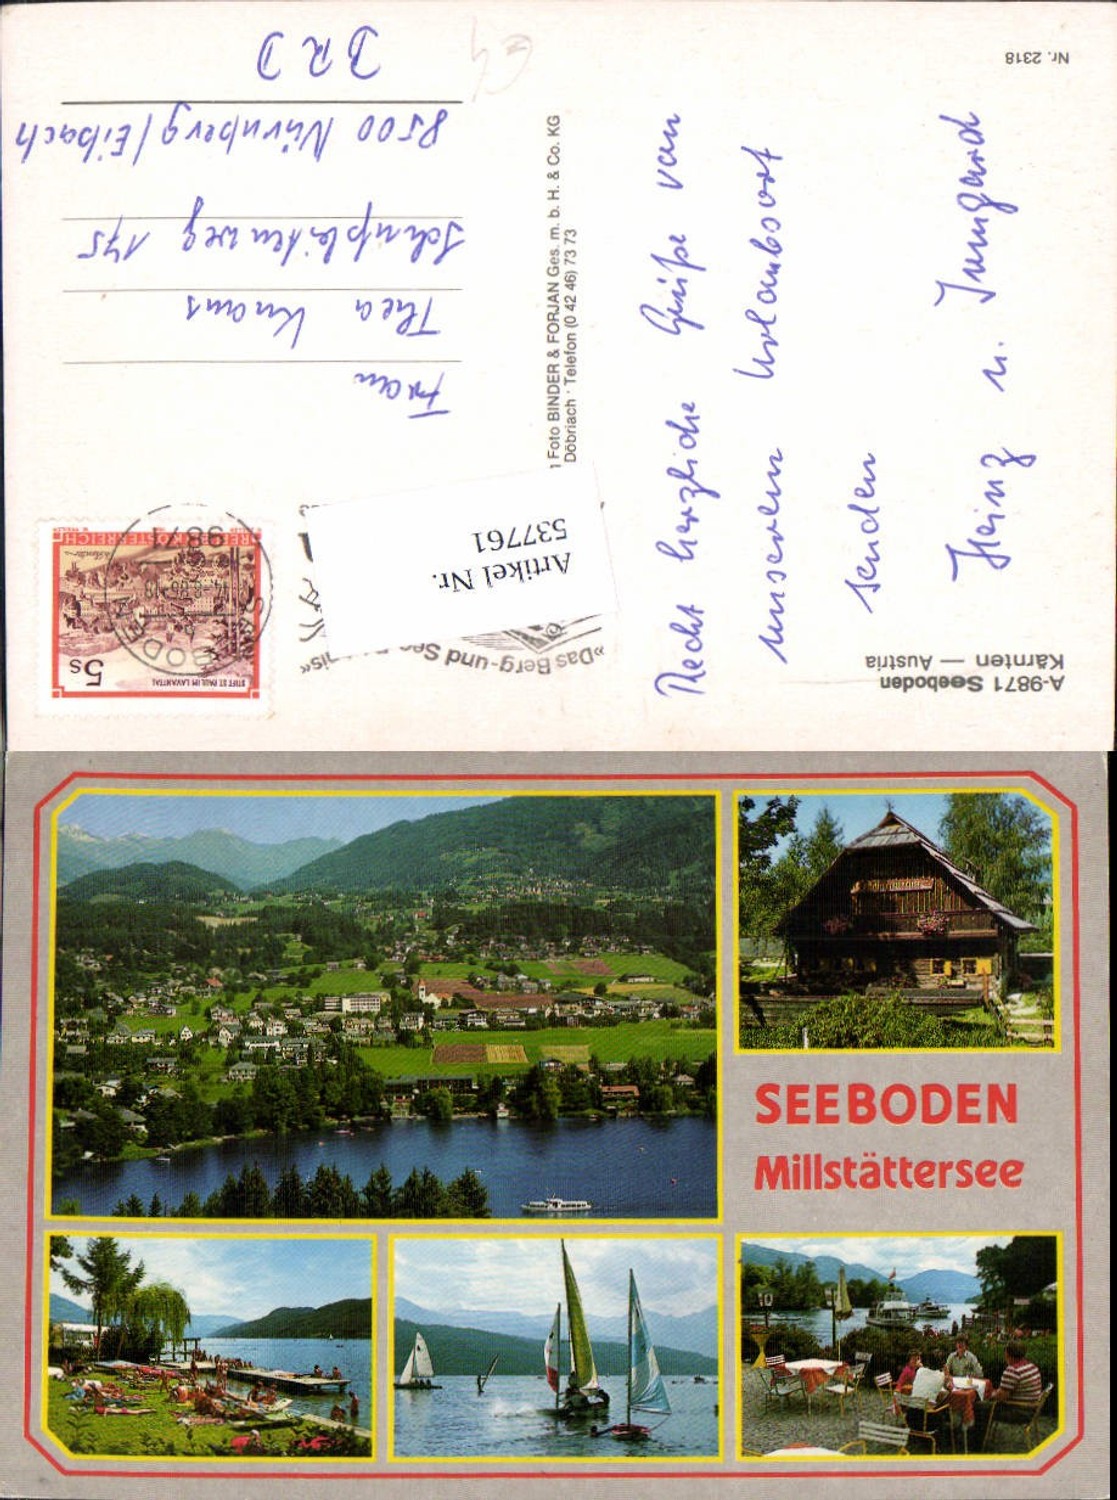 Nr. 2318
A-9871 Seeboden
Kärnten — Austria
Recht herzliche Grüße von
unserem Urlaubsort
senden
Heinz u. Irmgard
Foto BINDER & FORJAN Ges. m. b. H. & Co. KG
Döbriach · Telefon (0 42 46) 73 73
»Das Berg-und See
nis«
Artikel Nr.
537761
STIFT ST. PAUL IM LAVANTTAL
5s
REPUBLIK ÖSTERREICH
9871
Frau
Thea Knaus
175
8500 Nürnberg/Eibach
BRD
SEEBODEN
Millstättersee